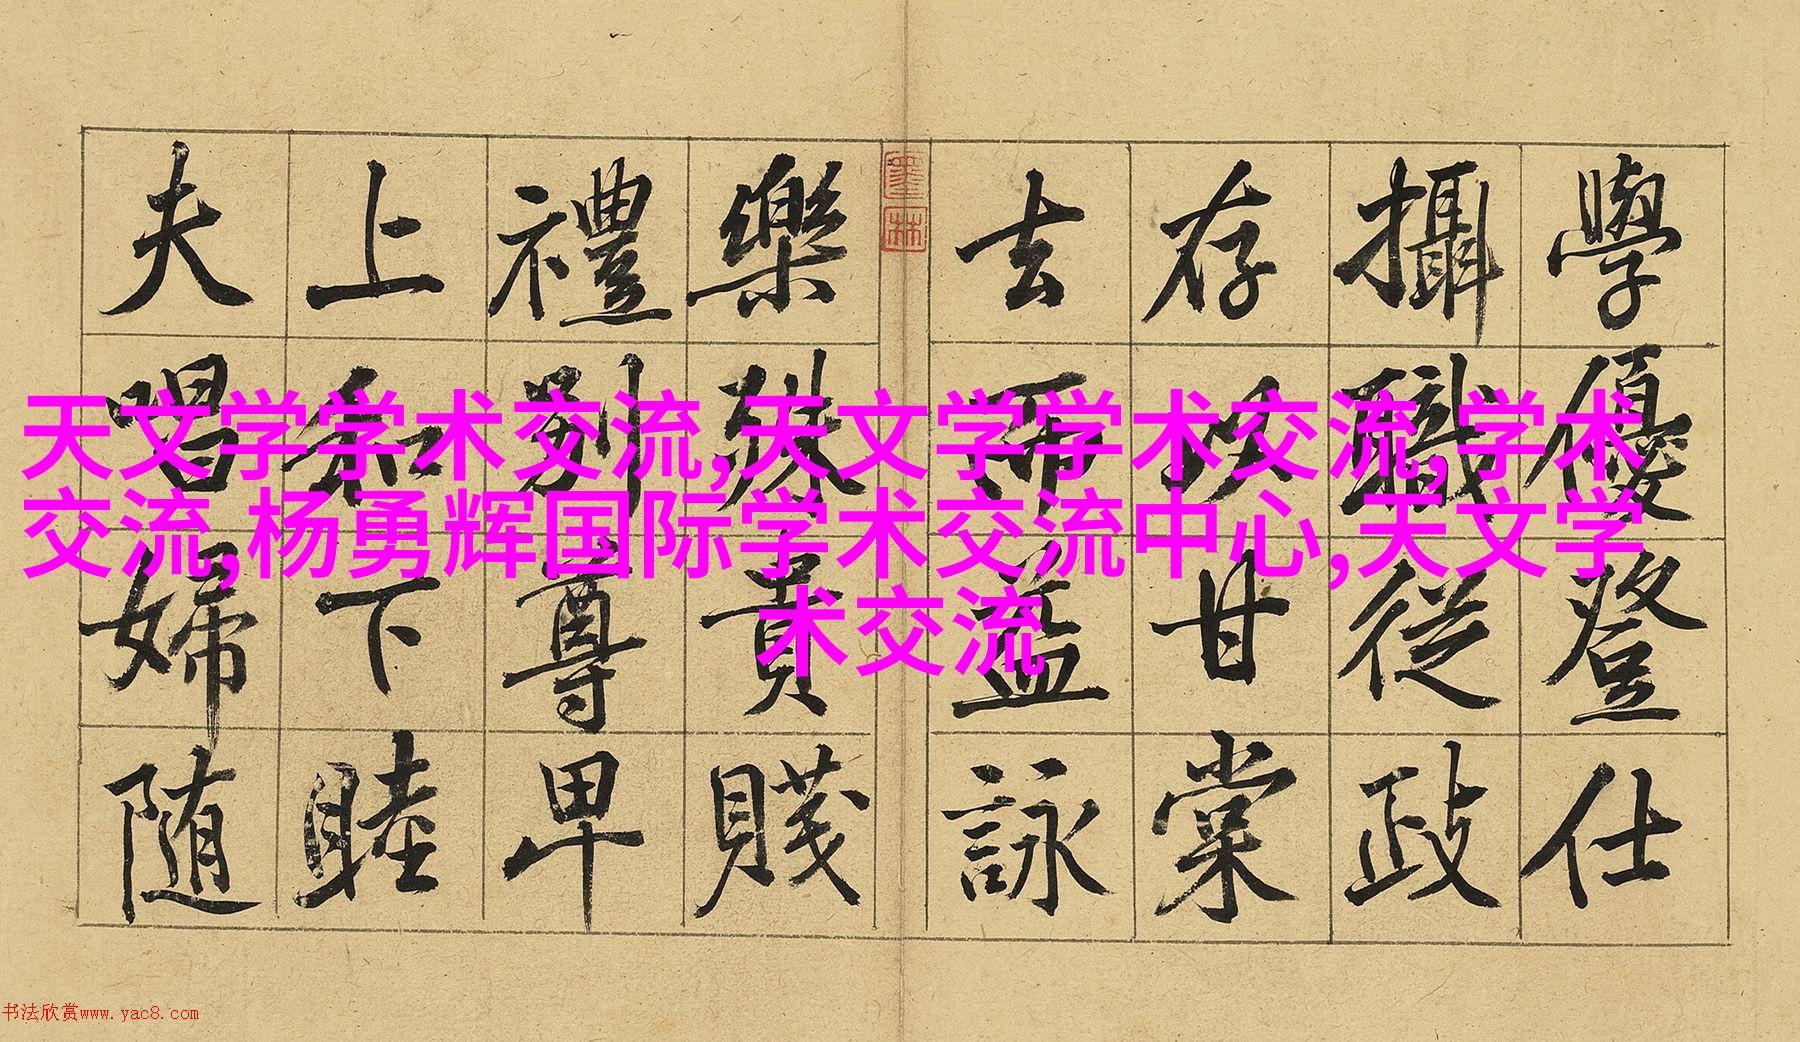 學優登仕
攝職從政
存以甘棠
去而益詠
墨林
樂殊貴賤
禮別尊卑
上和下睦
夫唱婦随
天文学学术交流,天文学学术交流,学术
交流,杨勇辉国际学术交流中心,天文学
术交流
书法欣赏www.yac8.com